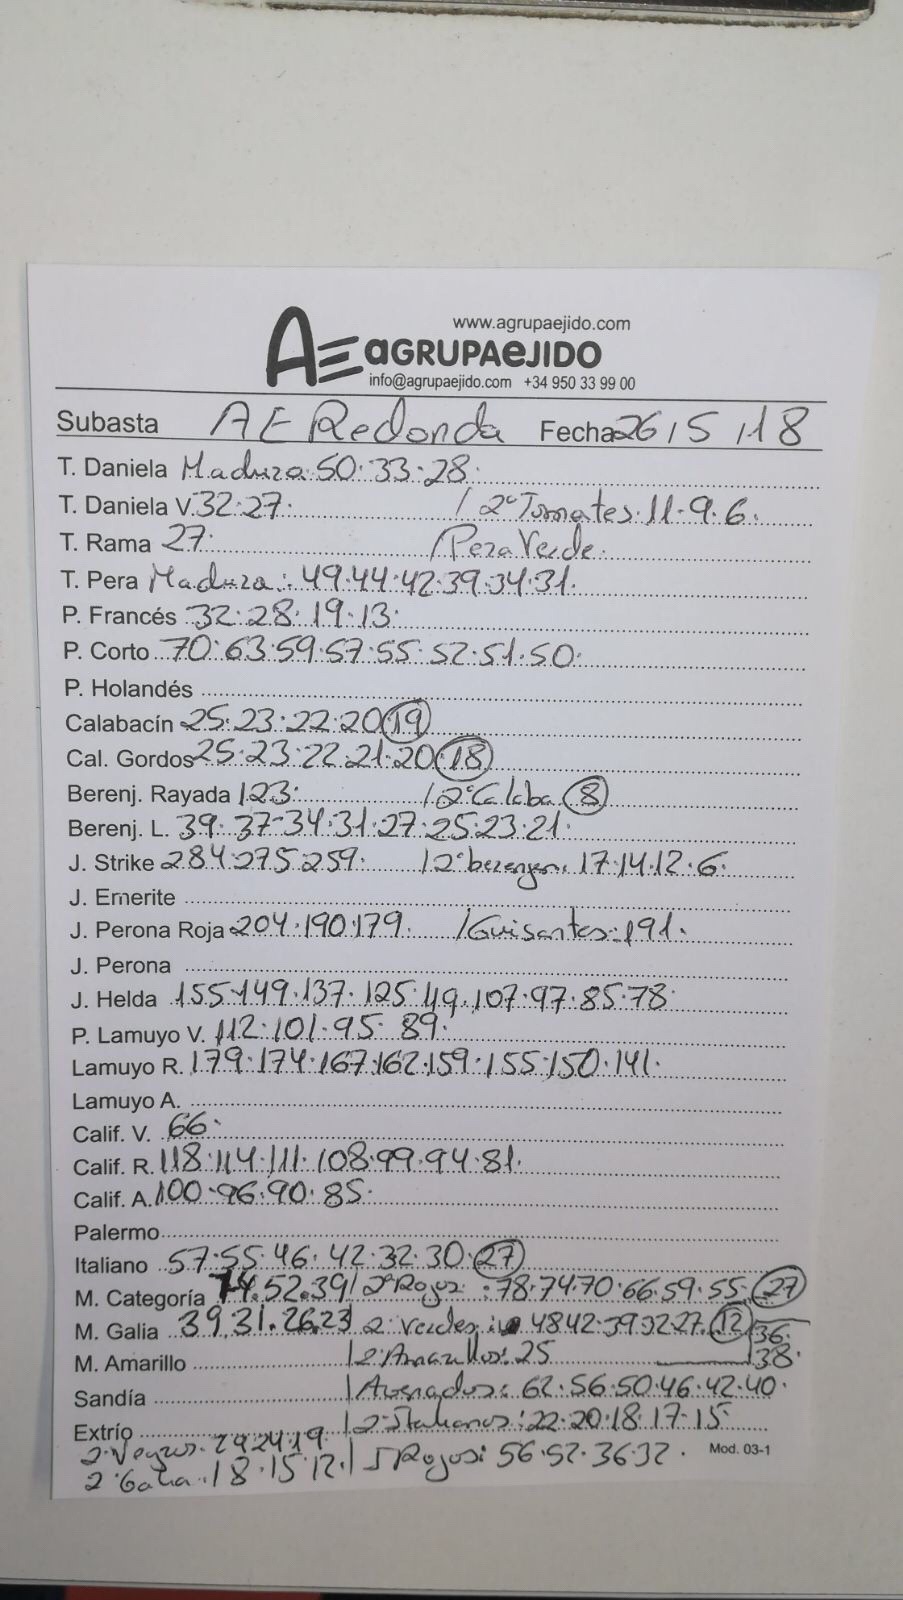 www.agrupaejido.com
AE aGRUPAeJIDO
info@agrupaejido.com +34 950 33 99 00
Subasta AE Redonda Fecha 26/5/18
T. Daniela Maduza 50·33·28·
T. Daniela V. 32·27· / 2ª Tomates·11·9·6·
T. Rama 27· / Peza Verde·
T. Pera Maduza: 49·44·42·39·34·31·
P. Francés 32·28·19·13·
P. Corto 70·63·59·57·55·52·51·50·
P. Holandés
Calabacín 25·23·22·20 19
Cal. Gordos 25·23·22·21·20· 18
Berenj. Rayada 123· / 2ª Calaba 8
Berenj. L. 39·37·34·31·27·25·23·21·
J. Strike 284·275·259· / 2ª berengen· 17·14·12·6·
J. Emerite
J. Perona Roja 204·190·179· / Guisantes: 191·
J. Perona
J. Helda 155·149·137·125·119·107·97·85·78·
P. Lamuyo V. 112·101·95·89·
Lamuyo R. 179·174·167·162·159·155·150·141·
Lamuyo A.
Calif. V. 66·
Calif. R. 118·114·111·108·99·94·81·
Calif. A. 100·96·90·85·
Palermo
Italiano 57·55·46·42·32·30· 27
M. Categoría 74·52·39 / 2ª Rojos: 78·74·70·66·59·55· 27
M. Galia 39·31·26·23 2ª Verdes: 48·42·39·32·27· 12 36·
M. Amarillo / 2ª Amarillos: 25 38·
Sandía / Asenados: 62·56·50·46·42·40·
Extrío / 2ª Italianos: 22·20·18·17·15
2ª 29·24·19
2ª Galia· 18·15·12· / Rojos: 56·52·36·32· Mod. 03-1